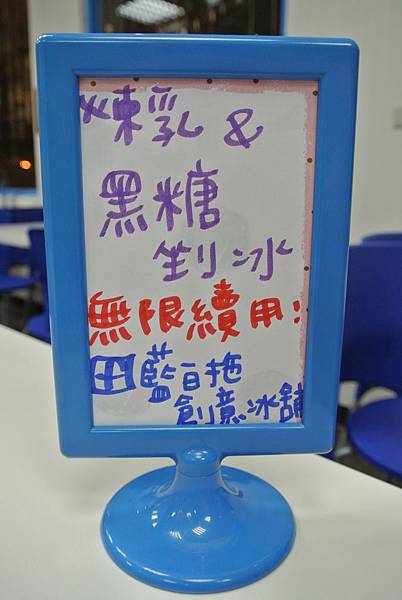 煉乳 &
黑糖
剉冰
無限續用!
田藍白拖
創意冰舖